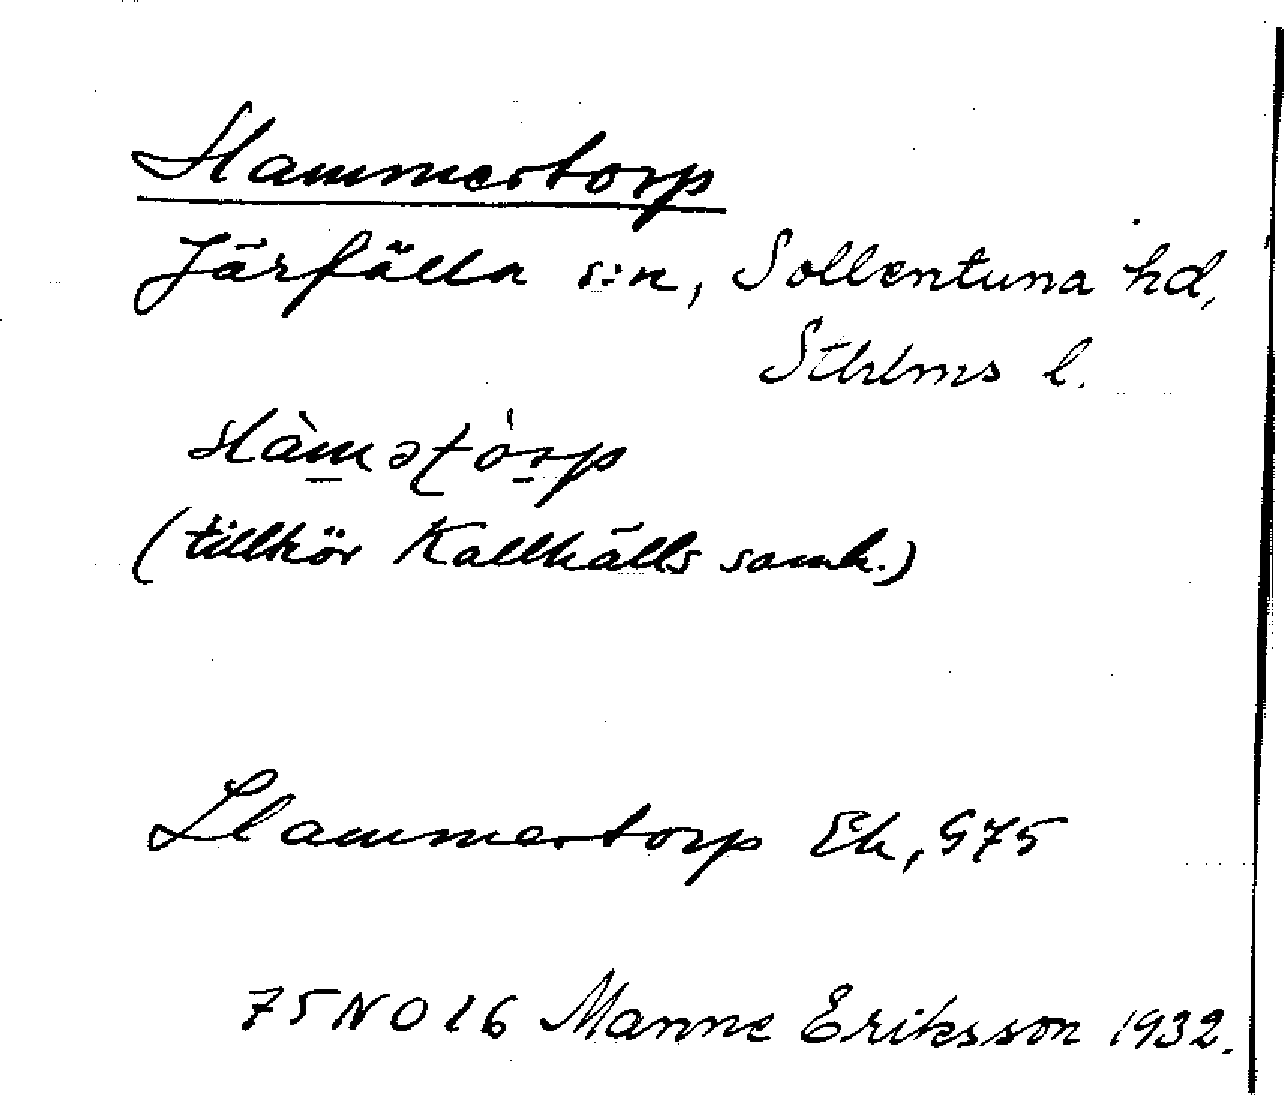 Hammertorp
Järfälla s:n, Sollentuna hd,
Sthlms l.
Hàmətòrp
(tillhör Kallhälls samh.)
Hammertorp Ek, 975
75 NO 16 Manne Eriksson 1932.